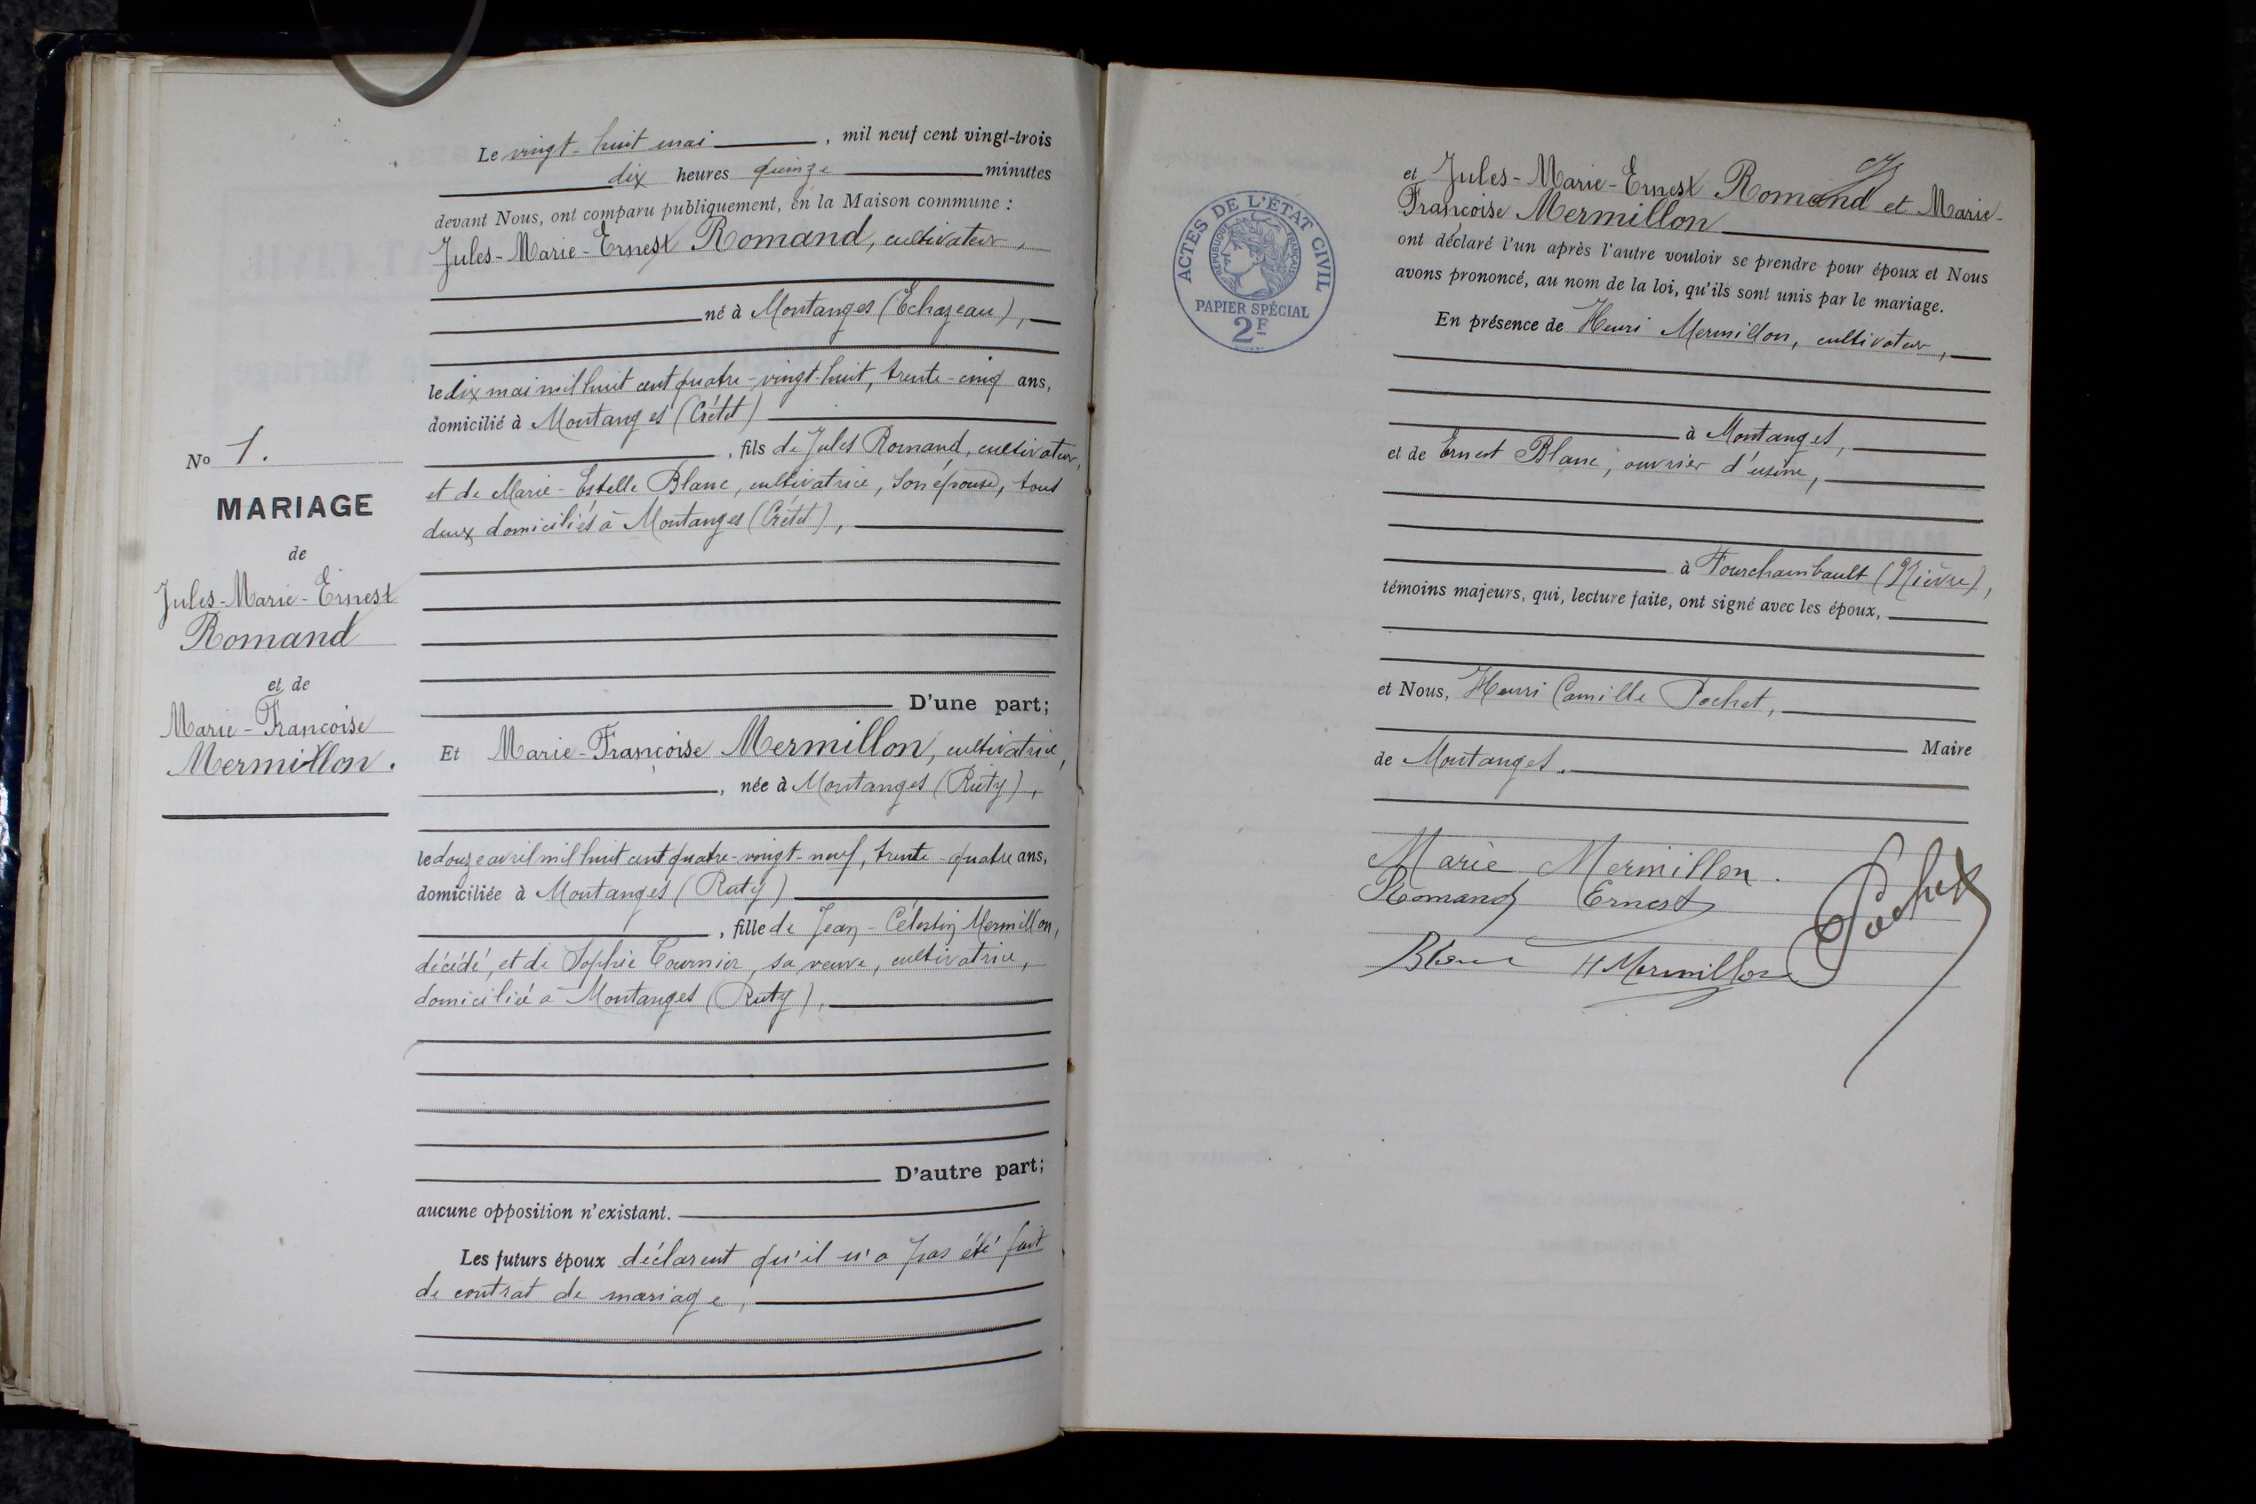 Le vingt-huit mai, mil neuf cent vingt-trois
dix heures quinze minutes
devant Nous, ont comparu publiquement, en la Maison commune :
Jules-Marie-Ernest Romand, cultivateur,
né à Montanges (Echazeau),
le dix mai mil huit cent quatre-vingt-huit, trente-cinq ans,
domicilié à Montanges (Crétet)
, fils de Jules Romand, cultivateur,
et de Marie-Estelle Blanc, cultivatrice, son épouse, tous
deux domiciliés à Montanges (Crétet),
No 1.
MARIAGE
de
Jules-Marie-Ernest
Romand
et de
Marie-Françoise
Mermillon.
D'une part;
Et Marie-Françoise Mermillon, cultivatrice,
, née à Montanges (Ruty),
le douze avril mil huit cent quatre-vingt-neuf, trente-quatre ans,
domiciliée à Montanges (Ruty)
, fille de Jean-Célestin Mermillon,
décédé, et de Sophie Tournier, sa veuve, cultivatrice,
domiciliée à Montanges (Ruty),
D'autre part;
aucune opposition n'existant.
Les futurs époux déclarent qu'il n'a pas été fait
de contrat de mariage,
ACTES DE L'ÉTAT CIVIL
RÉPUBLIQUE FRANÇAISE
PAPIER SPÉCIAL
2F
et Jules-Marie-Ernest Romand et Marie-
Françoise Mermillon
ont déclaré l'un après l'autre vouloir se prendre pour époux et Nous
avons prononcé, au nom de la loi, qu'ils sont unis par le mariage.
En présence de Henri Mermillon, cultivateur,
à Montanges,
et de Ernest Blanc, ouvrier d'usine,
à Fourchambault (Nièvre),
témoins majeurs, qui, lecture faite, ont signé avec les époux,
et Nous, Henri Camille Pochet,
Maire
de Montanges.
Marie Mermillon.
Romand Ernest
Pochet
Blanc H Mermillon